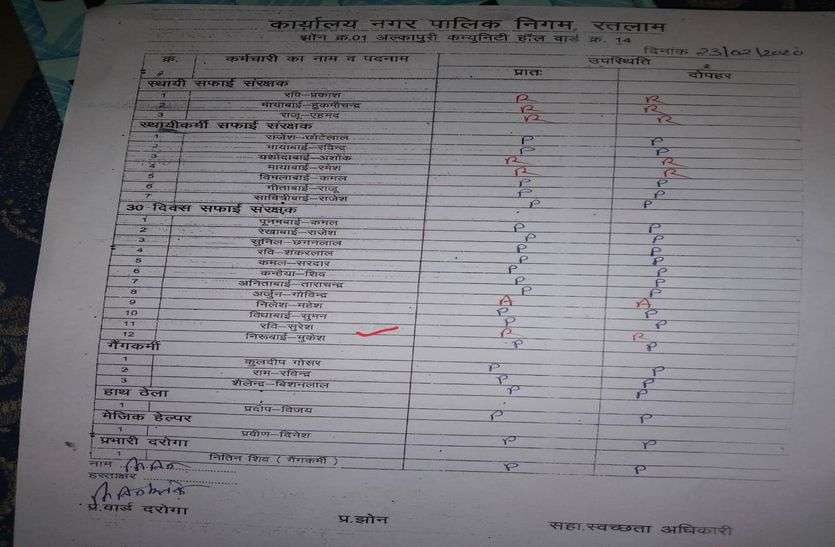 कार्यालय नगर पालिक निगम, रतलाम
झोन क्र.01 अल्कापुरी कम्युनिटी हॉल वार्ड क्र. 14
दिनांक 23/02/2020
क्र. कर्मचारी का नाम व पदनाम उपस्थिति
प्रातः दोपहर
स्थायी सफाई संरक्षक
1 रवि–प्रकाश P R
2 मायाबाई–हुकमीचन्द्र R R
3 राजू–एहमद R R
स्थायीकर्मी सफाई संरक्षक
1 राजेश–छोटेलाल P P
2 मायाबाई–रविन्द्र P P
3 यशोदाबाई–अशोक R R
4 मायाबाई–रमेश R R
5 विमलाबाई–कमल P P
6 गीताबाई–राजू P P
7 सावित्रीबाई–राजेश P P
30 दिवस सफाई संरक्षक
1 पूनमबाई–कमल P P
2 रेखाबाई–राजेश P P
3 सुनिल–छगनलाल P P
4 रवि–शंकरलाल P P
5 कमल–सरदार P P
6 कन्हैया–शिव P P
7 अनिताबाई–ताराचन्द्र P P
8 अर्जुन–गोविन्द्र A A
9 निलेश–महेश P P
10 विधाबाई–सुमन P P
11 रवि–सुरेश R R
12 निरूबाई–मुकेश P P
गैंगकर्मी
1 कुलदीप गोसर P P
2 राम–रविन्द्र P P
3 शैलेन्द्र–बिशनलाल P P
हाथ ठेला
1 प्रदीप–विजय P P
मेजिक हेल्पर
1 प्रवीण–दिनेश P P
प्रभारी दरोगा
1 नितिन शिव ( गैंगकर्मी ) P P
नाम
हस्ताक्षर
प्र.वार्ड दरोगा प्र.झोन सहा.स्वच्छता अधिकारी